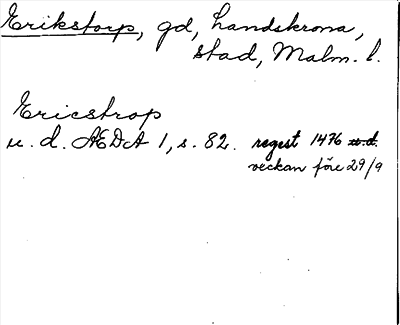 Erikstorp, gd, Landskrona,
stad, Malm. l.
Ericstrop
u. d. ÆDA 1, s. 82. regest 1476 u.d.
veckan före 29/9